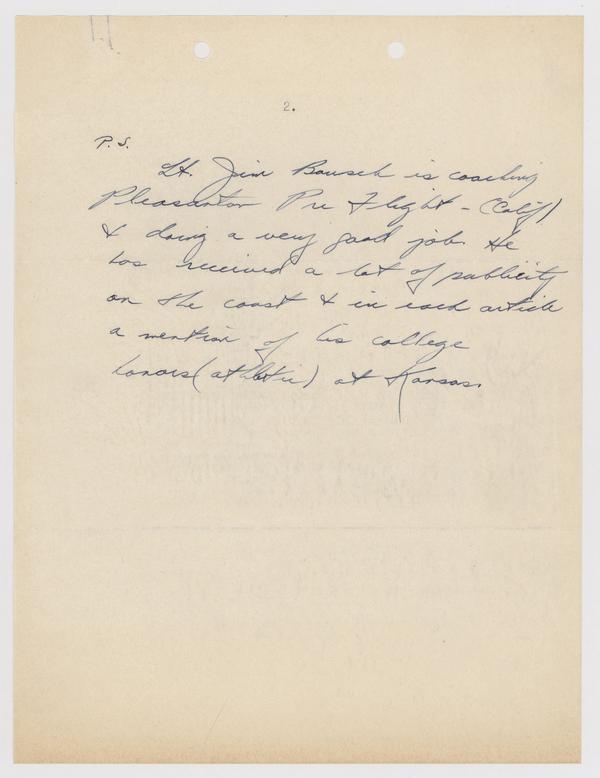 2.
P.S.
Lt. Jim Bausch is coaching
Pleasanton Pre Flight - (Calif)
& doing a very good job. He
has received a lot of publicity
on the coast & in each article
a mention of his college
honors (athletic) at Kansas.